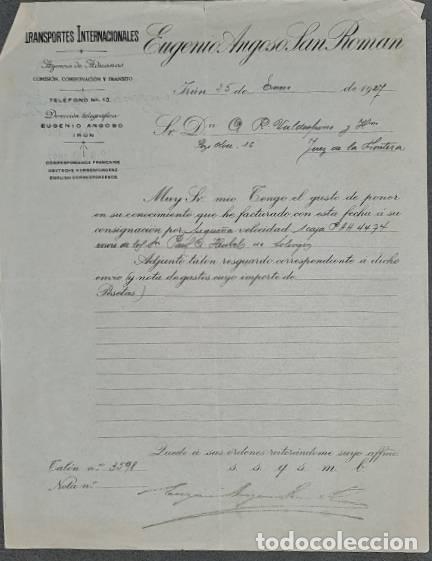 TRANSPORTES INTERNACIONALES
Agencia de Aduanas
COMISIÓN, CONSIGNACIÓN Y TRÁNSITO
TELÉFONO NÚM. 13.
Dirección telegráfica:
EUGENIO ANGOSO
IRÚN
CORRESPONDANCE FRANÇAISE
DEUTSCHE KORRESPONDENZ
ENGLISH CORRESPONDENCE
Eugenio Angoso San Román
Irún 25 de Enero de 1927
Sr. Dn. A. R. Valdespino y Hno
16
Jerez de la Frontera
Muy Sr. mío: Tengo el gusto de poner
en su conocimiento que he facturado con esta fecha a su
consignación por pequeña velocidad 1 caja 4474
de Paul
Adjunto talón resguardo correspondiente á dicho
envío (y nota de gastos cuyo importe de
Pesetas)
Quedo á sus órdenes reiterándome suyo affmo.
s. s. q. s. m. b.
Talón n.º 3598
Nota n.º
todocoleccion.net